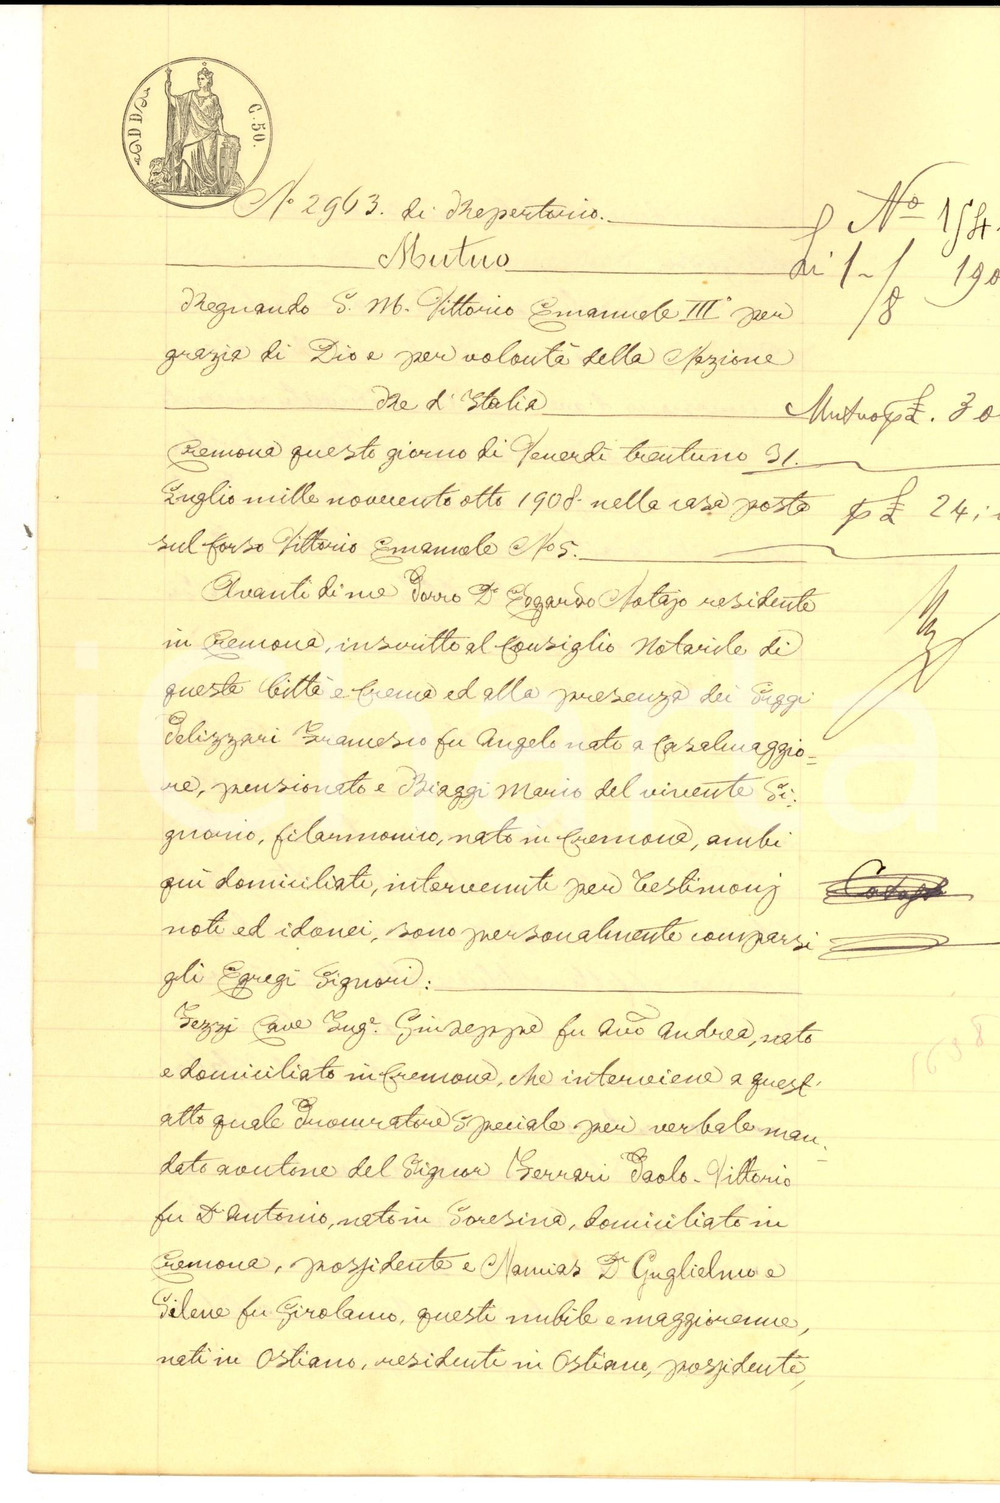 C. 50.
N° 2963. di Repertorio.
N° 154.
Mutuo
li 1-/8 190
Regnando S. M. Vittorio Emanuele III° per
grazia di Dio e per volontà della Nazione
Re d'Italia
Mutuo £. 30
Cremona questo giorno di Venerdì trentuno 31.
Luglio mille novecento otto 1908 nella casa posta
£ 24
sul Corso Vittorio Emanuele N° 5.
Avanti di me Porro Dr Edgardo Notajo residente
in Cremona, inscritto al Consiglio Notarile di
questa Città e Crema ed alla presenza dei Siggi
Pelizzari Francesco fu Angelo nato a Casalmaggio=
re, pensionato e Biaggi Mario del vivente Si:
gnorio, filarmonico, nato in Cremona, ambi
qui domiciliati, intervenuti per testimonj
noti ed idonei, sono personalmente comparsi
gli Egregi Signori:
Fezzi Cave Ingr. Giuseppe fu Avvo Andrea, nato
e domiciliato in Cremona, che interviene a quest'
atto quale Procuratore Speciale per verbale man:
dato avutone del Signor Ferrari Paolo-Vittorio
fu Dr Antonio, nato in Soresina, domiciliato in
Cremona, possidente e Namias Dr Guglielmo e
Silene fu Girolamo, questi nubile e maggiorenne,
nati in Ostiano, residenti in Ostiano, possidente,